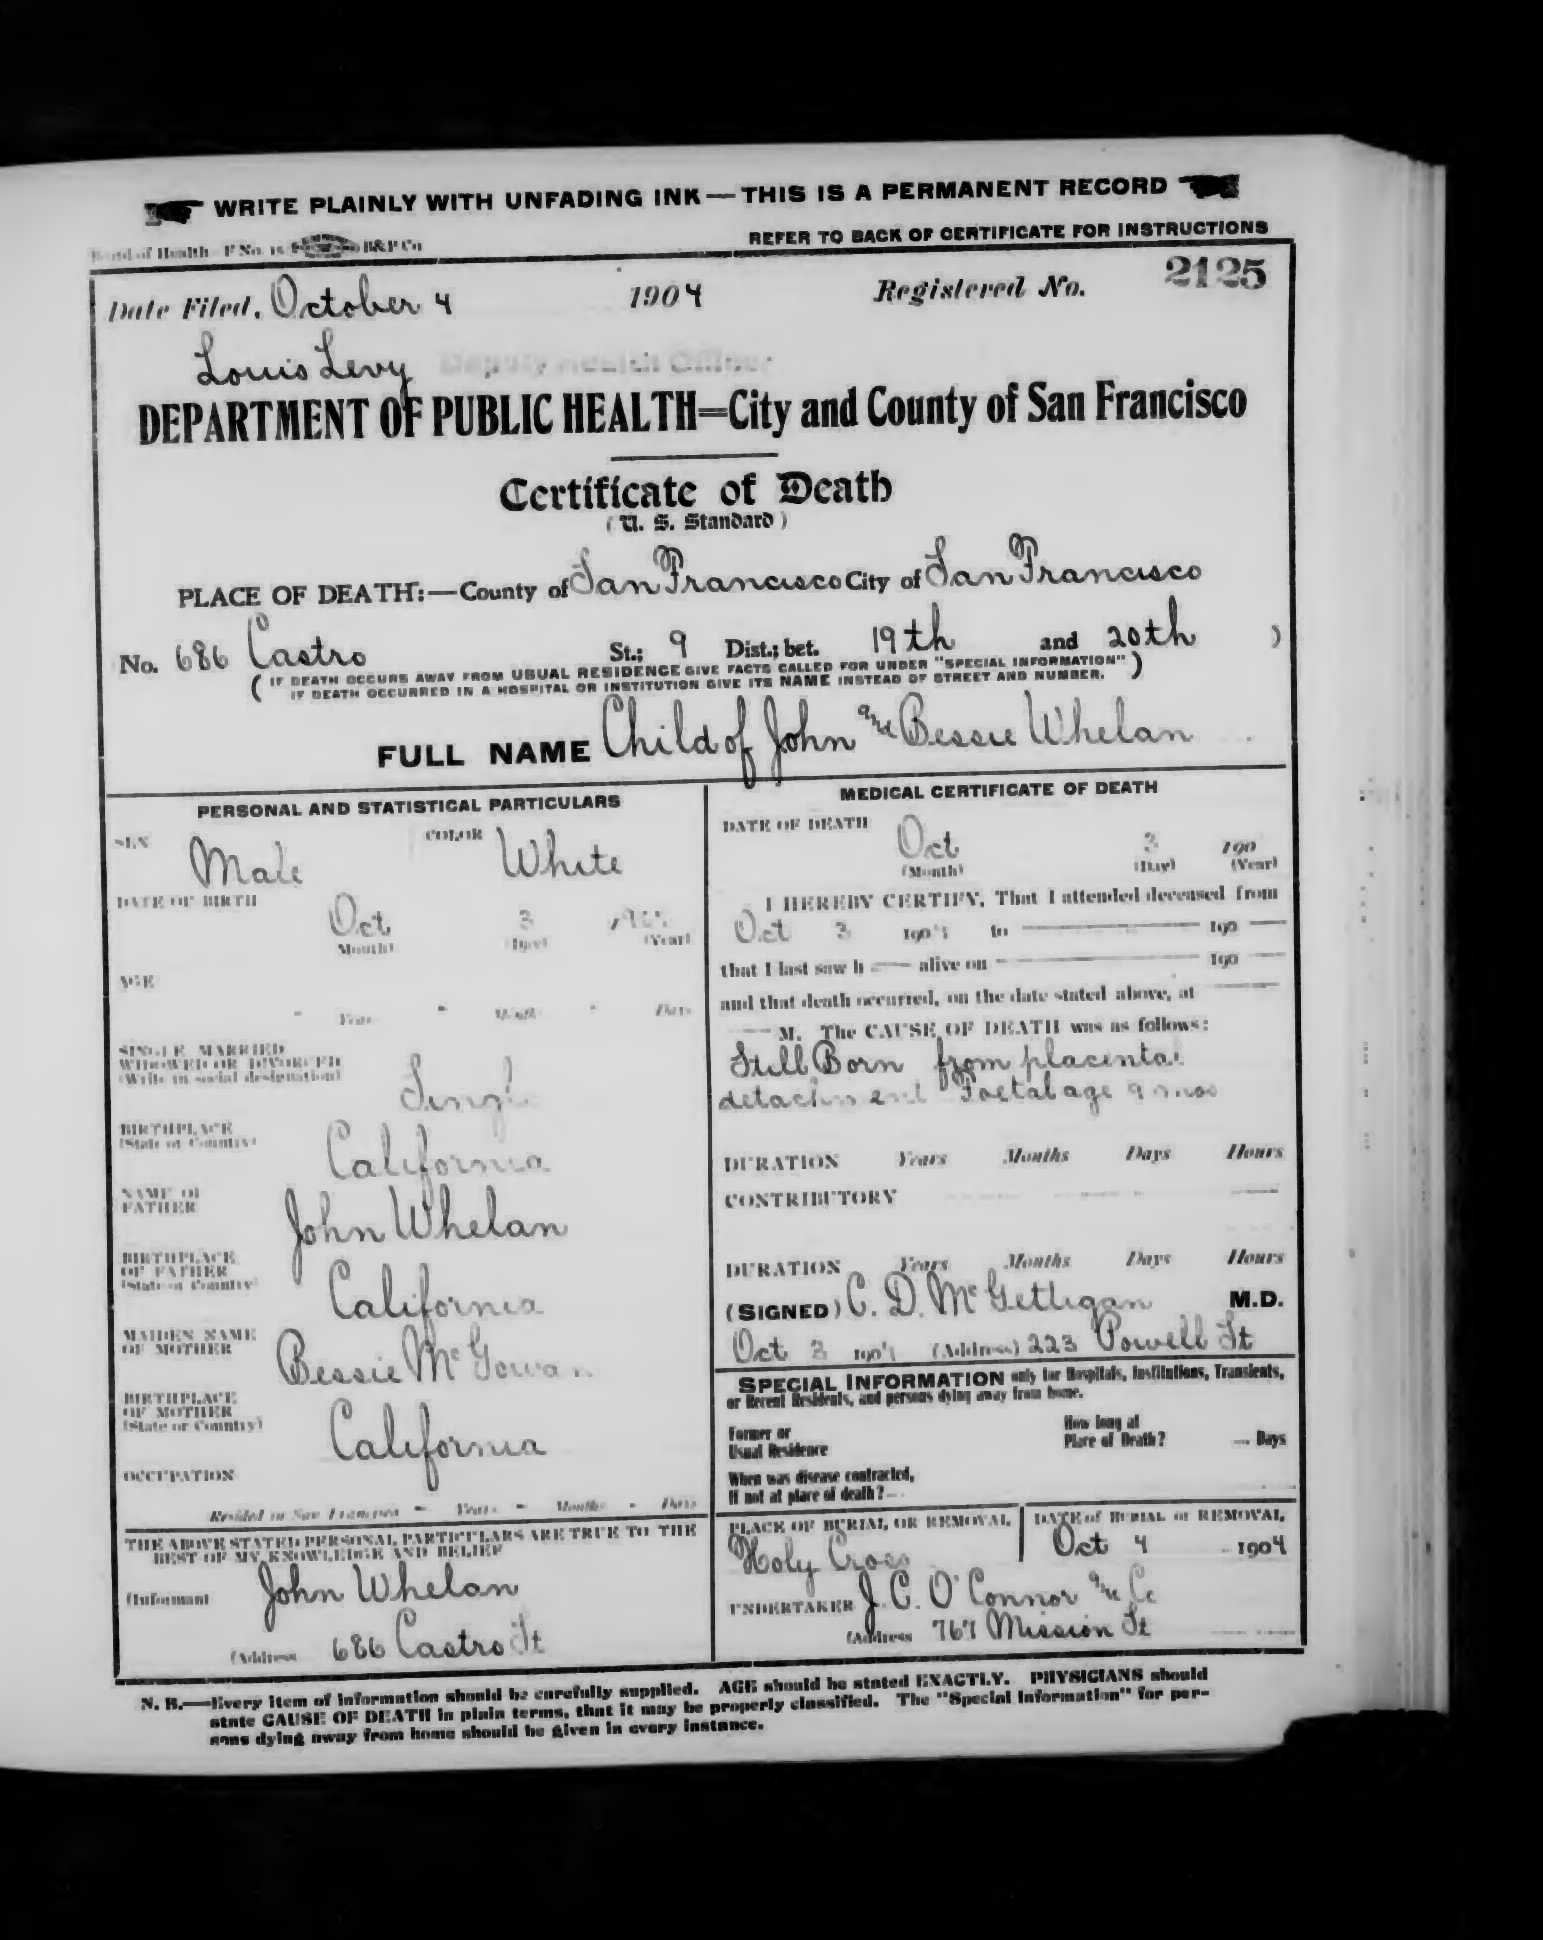 WRITE PLAINLY WITH UNFADING INK — THIS IS A PERMANENT RECORD
Board of Health F No. 15 B&P Co
REFER TO BACK OF CERTIFICATE FOR INSTRUCTIONS
Date Filed, October 4 1904 Registered No. 2125
Louis Levy Deputy Health Officer
DEPARTMENT OF PUBLIC HEALTH=City and County of San Francisco
Certificate of Death
(U. S. Standard)
PLACE OF DEATH:—County of San Francisco City of San Francisco
No. 686 Castro St.; 9 Dist.; bet. 19th and 20th )
( IF DEATH OCCURS AWAY FROM USUAL RESIDENCE GIVE FACTS CALLED FOR UNDER "SPECIAL INFORMATION" )
IF DEATH OCCURRED IN A HOSPITAL OR INSTITUTION GIVE ITS NAME INSTEAD OF STREET AND NUMBER.
FULL NAME Child of John and Bessie Whelan
PERSONAL AND STATISTICAL PARTICULARS
SEX Male COLOR White
DATE OF BIRTH Oct 3
(Month) (Day) (Year)
AGE
Years Months Days
SINGLE MARRIED
WIDOWED OR DIVORCED
(Write in social designation) Single
BIRTHPLACE
(State or Country) California
NAME OF
FATHER John Whelan
BIRTHPLACE
OF FATHER
(State or Country) California
MAIDEN NAME
OF MOTHER Bessie McGowan
BIRTHPLACE
OF MOTHER
(State or Country) California
OCCUPATION
Resided in San Francisco - Years - Months - Days
THE ABOVE STATED PERSONAL PARTICULARS ARE TRUE TO THE
BEST OF MY KNOWLEDGE AND BELIEF
(Informant John Whelan
(Address 686 Castro St
MEDICAL CERTIFICATE OF DEATH
DATE OF DEATH Oct 3 190
(Month) (Day) (Year)
I HEREBY CERTIFY, That I attended deceased from
Oct 3 1904 to — 190 —
that I last saw h — alive on — 190 —
and that death occurred, on the date stated above, at —
— M. The CAUSE OF DEATH was as follows:
Still Born from placental
detachment Foetal age 9 mos
DURATION Years Months Days Hours
CONTRIBUTORY
DURATION Years Months Days Hours
(SIGNED) C. D. McGettigan M.D.
Oct 3 1904 (Address) 223 Powell St
SPECIAL INFORMATION only for Hospitals, Institutions, Transients,
or Recent Residents, and persons dying away from home.
Former or
Usual Residence
How long at
Place of Death? — Days
When was disease contracted,
If not at place of death?
PLACE OF BURIAL OR REMOVAL
Holy Cross
DATE of BURIAL or REMOVAL
Oct 4 1904
UNDERTAKER J. C. O'Connor and Co
(Address 767 Mission St
N. B.—Every item of information should be carefully supplied. AGE should be stated EXACTLY. PHYSICIANS should
state CAUSE OF DEATH in plain terms, that it may be properly classified. The "Special Information" for per-
sons dying away from home should be given in every instance.